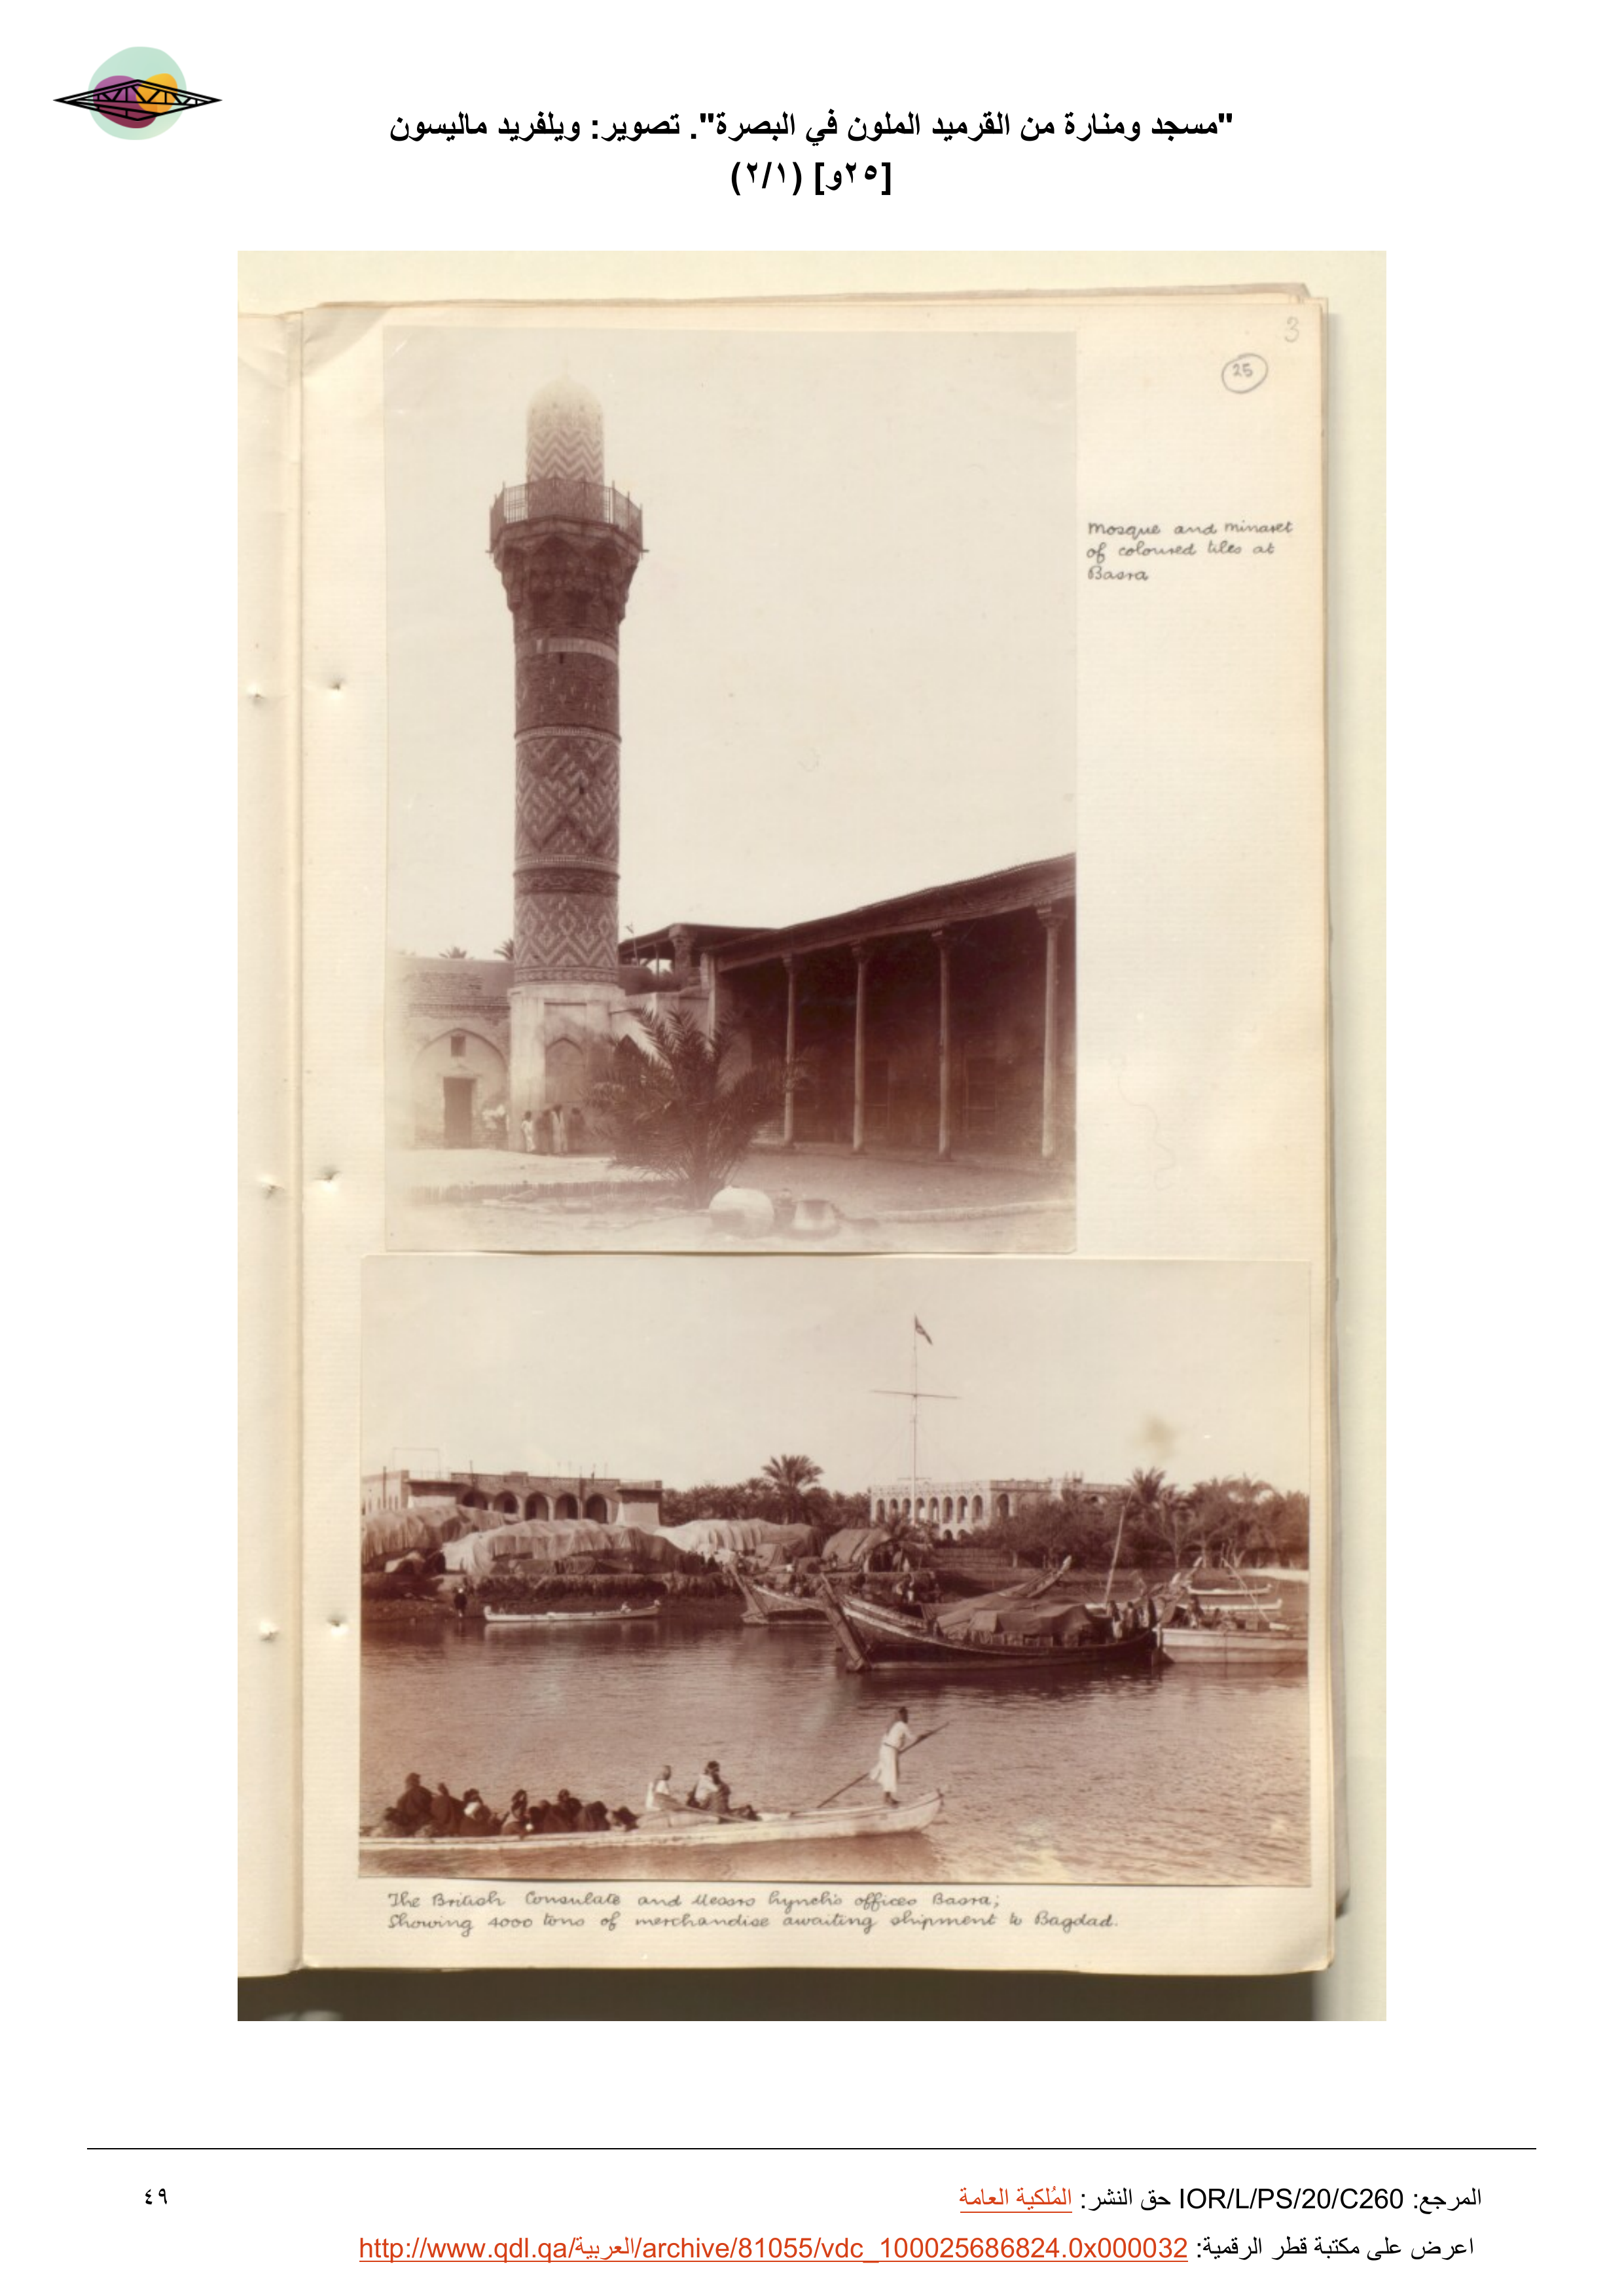 "مسجد ومنارة من القرميد الملون في البصرة". تصوير: ويلفريد ماليسون
[٢٥و] (٢/١)
3
25
Mosque and minaret
of coloured tiles at
Basra
The British Consulate and Messrs Lynch's offices Basra;
Showing 4000 tons of merchandise awaiting shipment to Bagdad.
المرجع: IOR/L/PS/20/C260 حق النشر: المُلكية العامة
٤٩
اعرض على مكتبة قطر الرقمية: http://www.qdl.qa/العربية/archive/81055/vdc_100025686824.0x000032